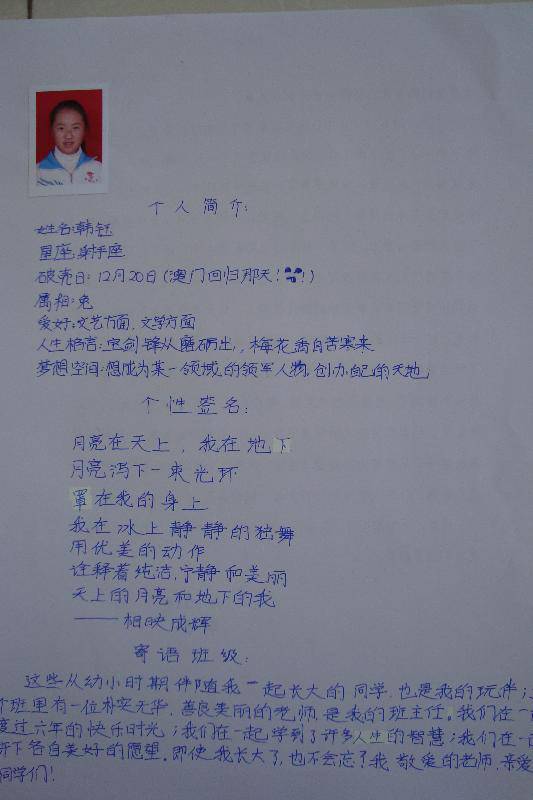 个人简介:
姓名:韩钰
星座:射手座
破壳日:12月20日(澳门回归那天!!)
属相:兔
爱好:文艺方面、文学方面
人生格言:宝剑锋从磨砺出,梅花香自苦寒来
梦想空间:想成为某一领域的领军人物,创办自己的天地
个性签名:
月亮在天上,我在地下
月亮泻下一束光环
罩在我的身上
我在冰上静静的独舞
用优美的动作
诠释着纯洁、宁静和美丽
天上的月亮和地下的我
——相映成辉
寄语班级:
这些从幼小时期伴随我一起长大的同学,也是我的玩伴;
个班里有一位朴实无华、善良美丽的老师,是我的班主任。我们在一
度过六年的快乐时光;我们在一起学到了许多人生的智慧;我们在一
下各自美好的愿望。即使我长大了,也不会忘了我敬爱的老师、亲爱
同学们!